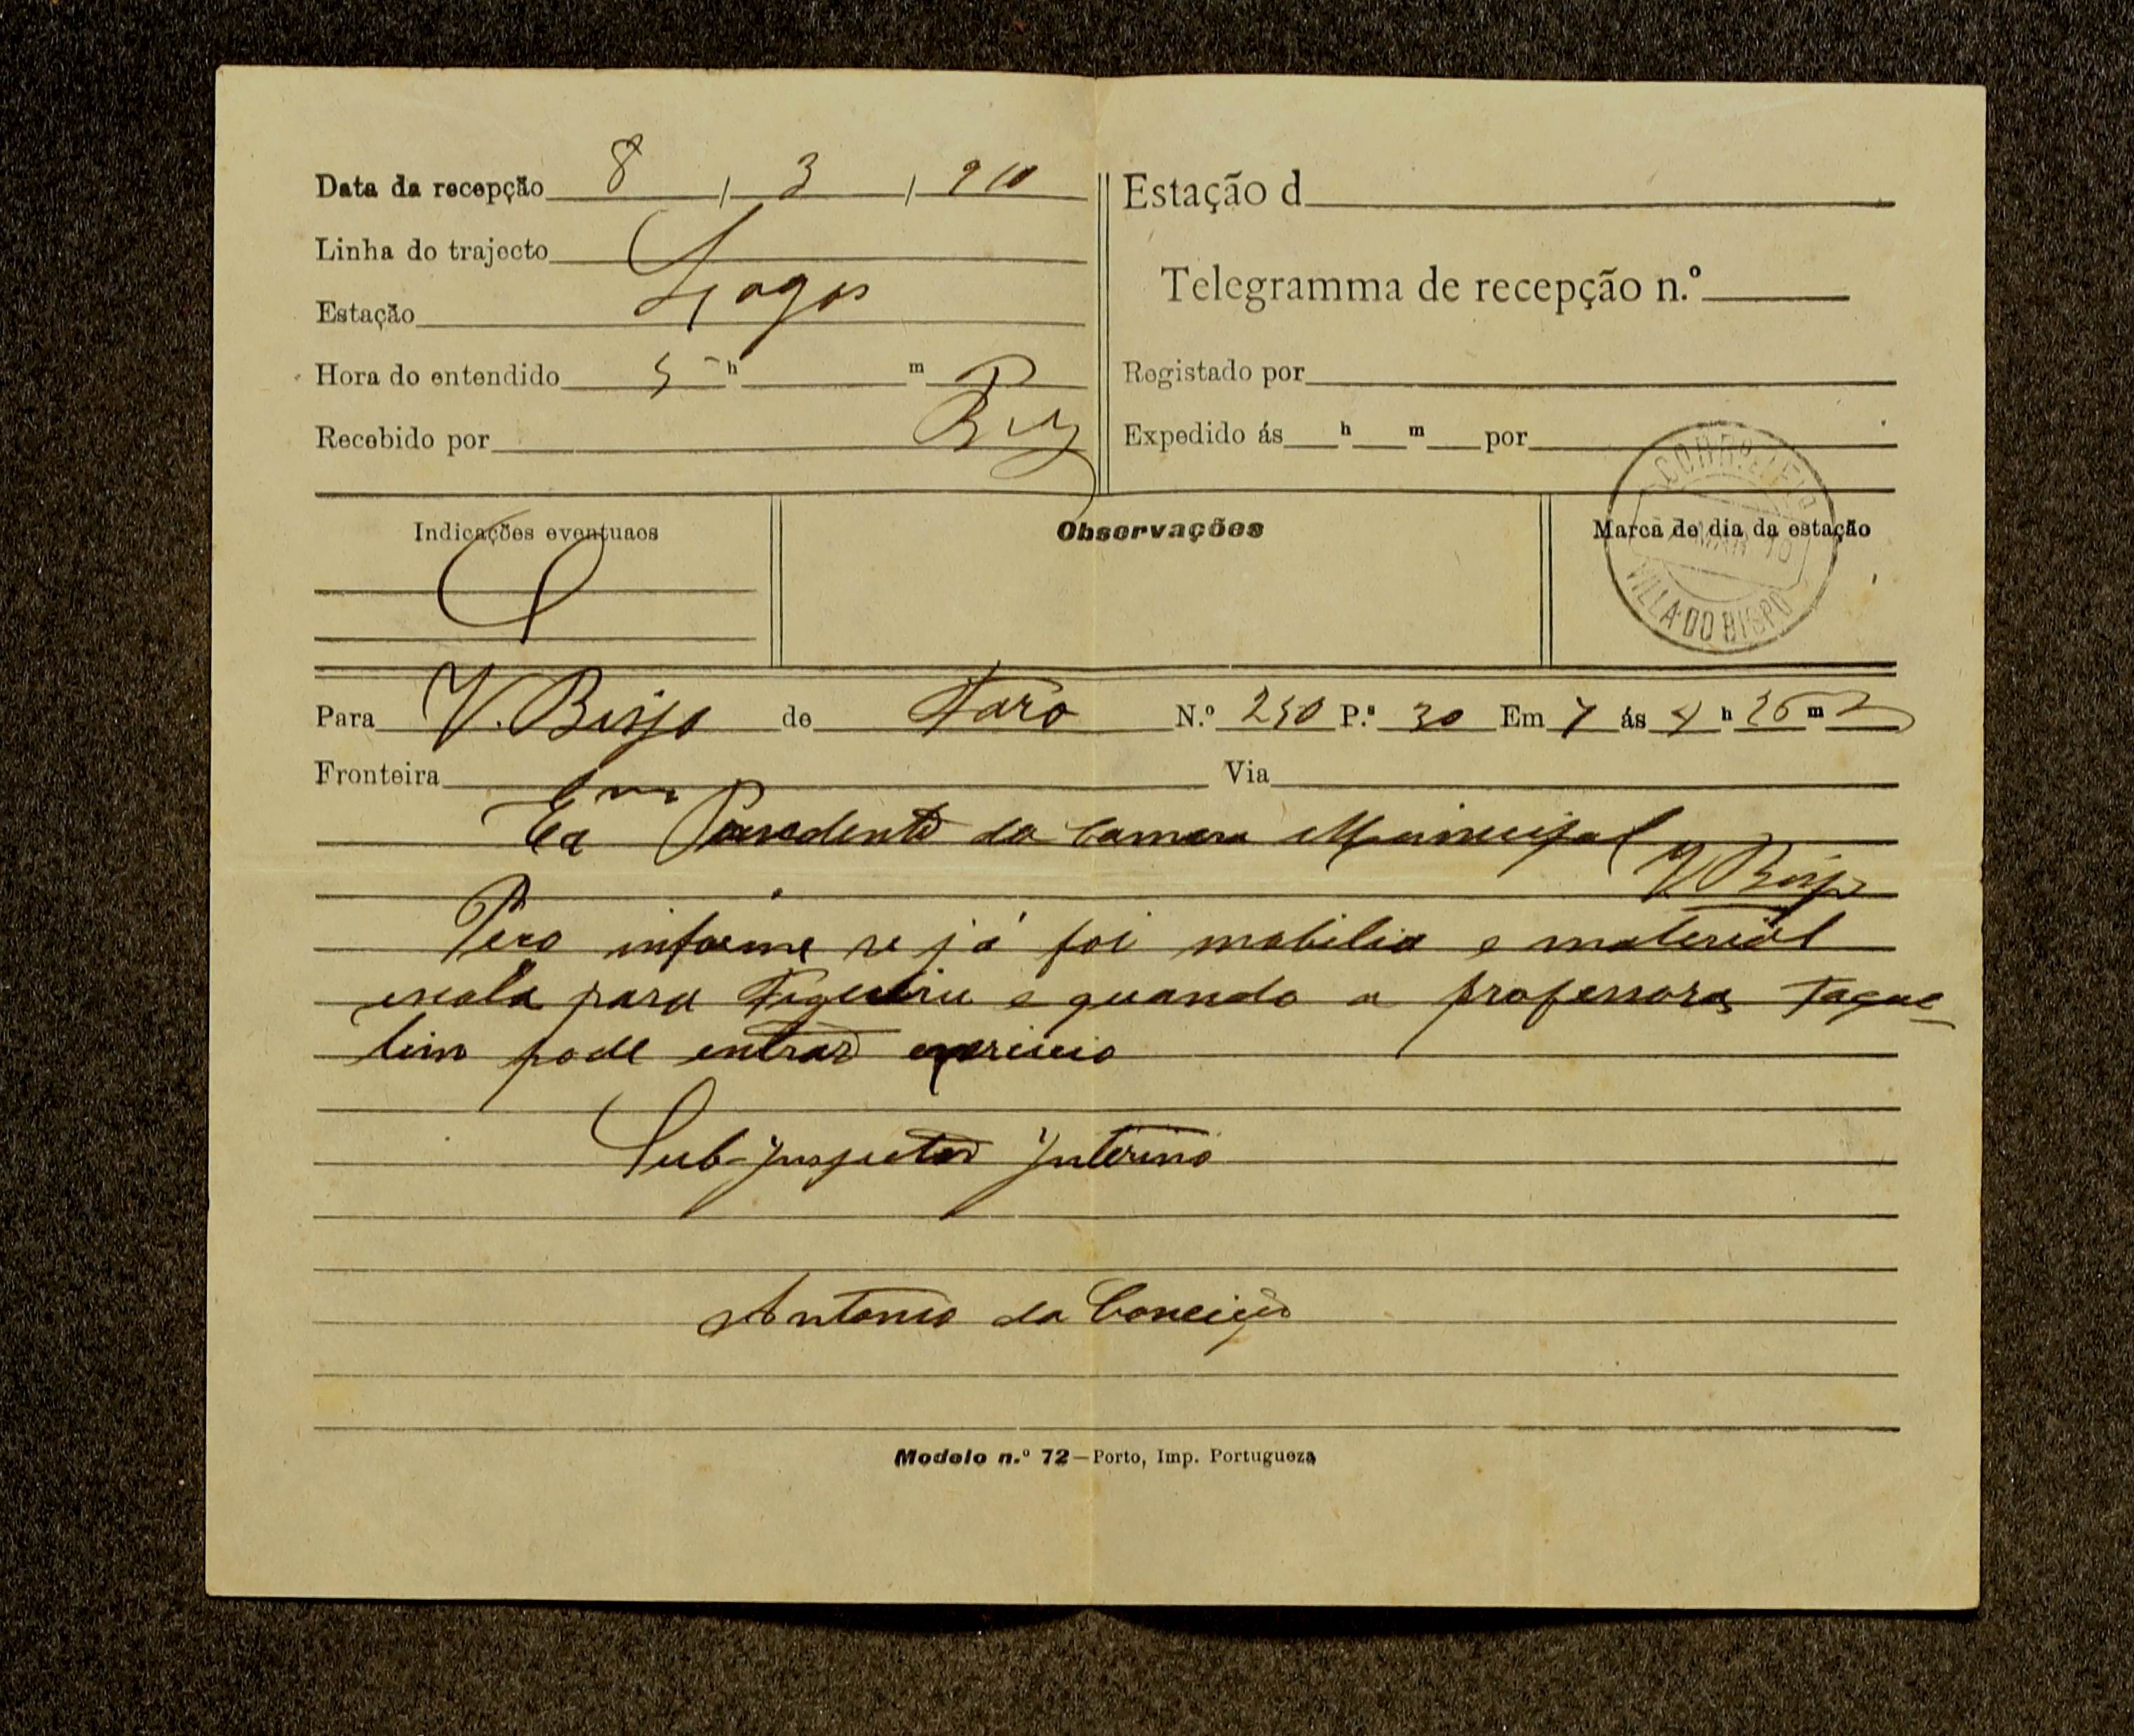 Data da recepção 8 / 3 / 910
Linha do trajecto
Estação Lagos
Hora do entendido 5 h m
Recebido por
Estação d
Telegramma de recepção n.º
Registado por
Expedido ás h m por
Indicações eventuaes
Observações
Marca de dia da estação
CORR.º E TELEG.
MAR 10
VILLA DO BISPO
Para V. Bispo de Faro N.º 250 P.ª 30 Em 7 ás 4 h 26 m
Fronteira Via
Exmo Presidente da Camara Municipal
V Bispo
Peço informe se já foi mobilia e material
escola para Figueira e quando a professora Taque-
lim pode entrar exercicio
Sub-Inspector Interino
Antonio da Conceição
Modelo n.º 72—Porto, Imp. Portugueza